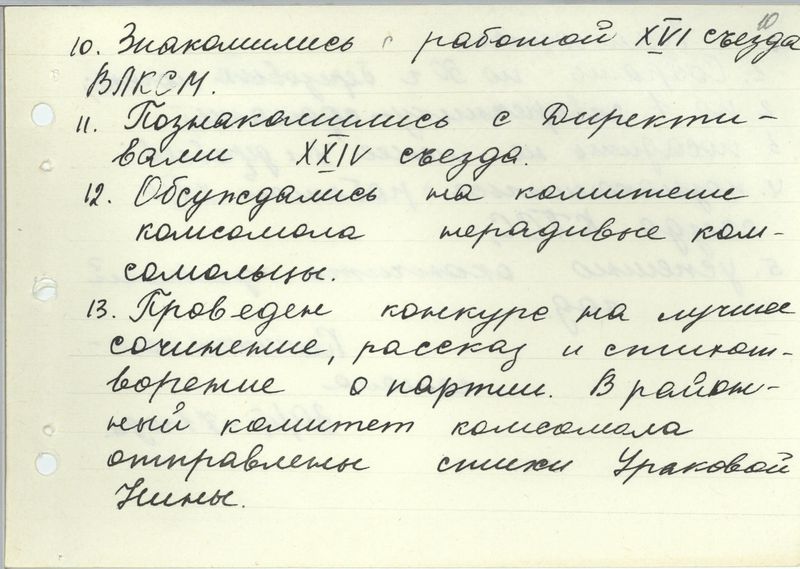 10
10. Знакомились с работой XVI съезда
ВЛКСМ.
11. Познакомились с Директи-
вами XXIV съезда.
12. Обсуждались на комитете
комсомола нерадивые ком-
сомольцы.
13. Проведен конкурс на лучшее
сочинение, рассказ и стихот-
ворение о партии. В район-
ный комитет комсомола
отправлены стихи Ураковой
Нины.